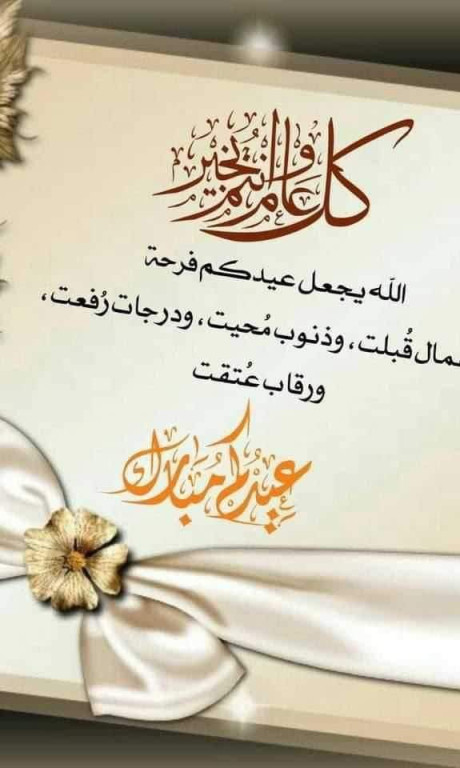 كل عام وانتم بخير
الله يجعل عيدكم فرحة
قُبلت، وذنوب مُحيت، ودرجات رُفعت،
ورقاب عُتقت
عيدكم مبارك